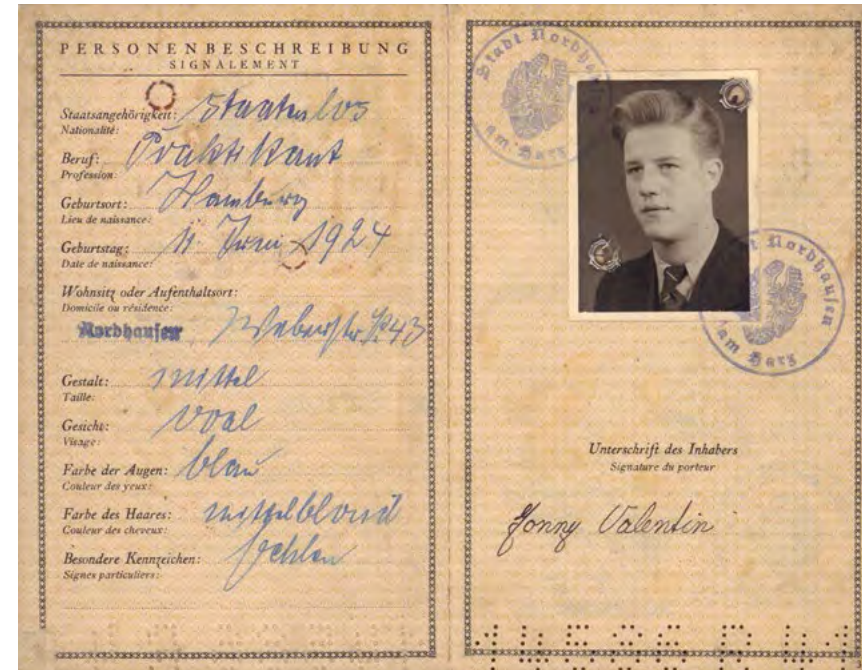 PERSONENBESCHREIBUNG
SIGNALEMENT
Staatsangehörigkeit: Staatenlos
Nationalité:
Beruf: Praktikant
Profession:
Geburtsort: Hamburg
Lieu de naissance:
Geburtstag: 11. Juni 1924
Date de naissance:
Wohnsitz oder Aufenthaltsort:
Domicile ou résidence:
Nordhausen, Weberstr. 43
Gestalt: mittel
Taille:
Gesicht: oval
Visage:
Farbe der Augen: blau
Couleur des yeux:
Farbe des Haares: mittelblond
Couleur des cheveux:
Besondere Kennzeichen: fehlen
Signes particuliers:
Stadt Nordhausen
am Harz
Nordhausen
am Harz
Unterschrift des Inhabers
Signature du porteur
Jonny Valentin